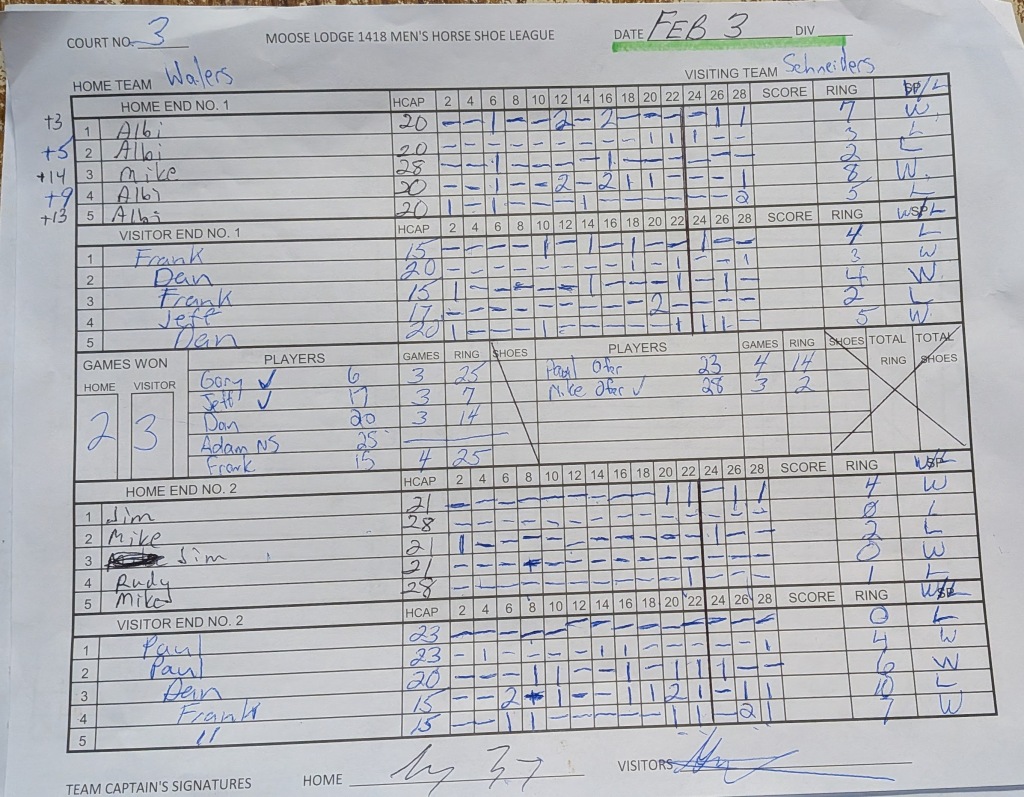 COURT NO. 3 MOOSE LODGE 1418 MEN'S HORSE SHOE LEAGUE DATE FEB 3 DIV
HOME TEAM Walers VISITING TEAM Schneiders
HOME END NO. 1 HCAP 2 4 6 8 10 12 14 16 18 20 22 24 26 28 SCORE RING W/L
+3 1 Albi 20 - - 1 - - 2 - 2 - - - - 1 1 7 W
+5 2 Albi 20 - - - - - - - - - 1 1 1 - - 3 L
+14 3 Mike 28 - - 1 - - - - 1 - - - - - - 2 L
+9 4 Albi 20 - - 1 - - 2 - 2 1 1 - - - 1 8 W
+13 5 Albi 20 1 - 1 - - - 1 - - - - - - 2 5 L
VISITOR END NO. 1 HCAP 2 4 6 8 10 12 14 16 18 20 22 24 26 28 SCORE RING W/L
1 Frank 15 - - - - 1 - 1 - 1 - - 1 - - 4 L
2 Dan 20 - - - - - - - - 1 - 1 - - 1 3 W
3 Frank 15 1 - - - - - 1 - - - 1 - 1 - 4 W
4 Jeff 17 - - - - - - - - - 2 - - - - 2 L
5 Dan 20 1 - - - 1 - - - - - 1 1 1 - 5 W
GAMES WON PLAYERS GAMES RING SHOES PLAYERS GAMES RING SHOES TOTAL RING TOTAL SHOES
HOME VISITOR
2 3
Gary ✓ 6 3 25 Paul Ofer 23 4 14
Jeff ✓ 17 3 7 Mike Ofer ✓ 28 3 2
Dan 20 3 14
Adam NS 25
Frank 15 4 25
HOME END NO. 2 HCAP 2 4 6 8 10 12 14 16 18 20 22 24 26 28 SCORE RING W/L
1 Jim 21 - - - - - - - - - 1 1 - 1 1 4 W
2 Mike 28 - - - - - - - - - - - - - - 0 L
3 Jim 21 1 - - - - - - - - - - 1 - - 2 L
4 Rudy 21 - - - - - - - - - - - - - - 0 W
5 Mike 28 - - - - - - - - - - 1 - - - 1 L
VISITOR END NO. 2 HCAP 2 4 6 8 10 12 14 16 18 20 22 24 26 28 SCORE RING W/L
1 Paul 23 - - - - - - - - - - - - - - 0 L
2 Paul 23 - 1 - - - - 1 1 - - - - - 1 4 W
3 Dan 20 - - - 1 1 - - 1 - 1 1 1 - - 6 W
4 Frank 15 - - 2 - 1 - - 1 1 2 1 - 1 1 10 L
5 " 15 - - 1 1 - - - - - 1 1 - 2 1 7 W
TEAM CAPTAIN'S SIGNATURES HOME VISITORS